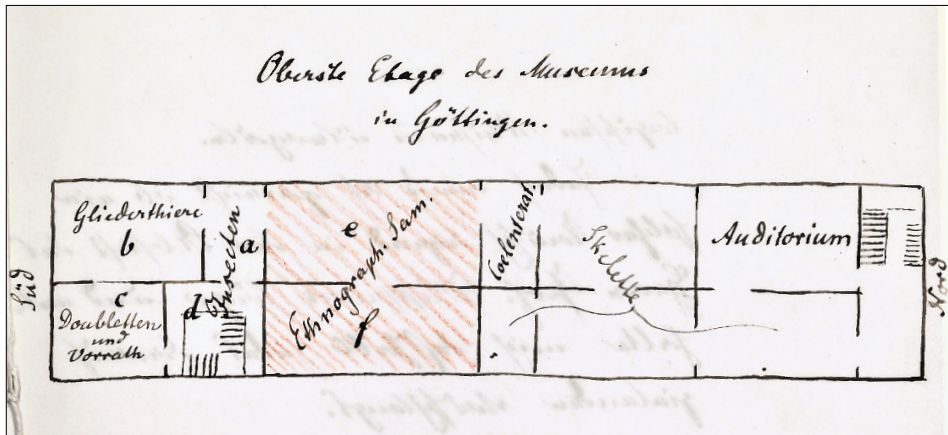 Oberste Etage des Museums
in Göttingen.
Süd
Gliederthiere
b
c
Doubletten
und
Vorrath
d
Insecten
a
e
Ethnograph. Sam.
f
Coelenterat.
Skelette
Auditorium
Nord